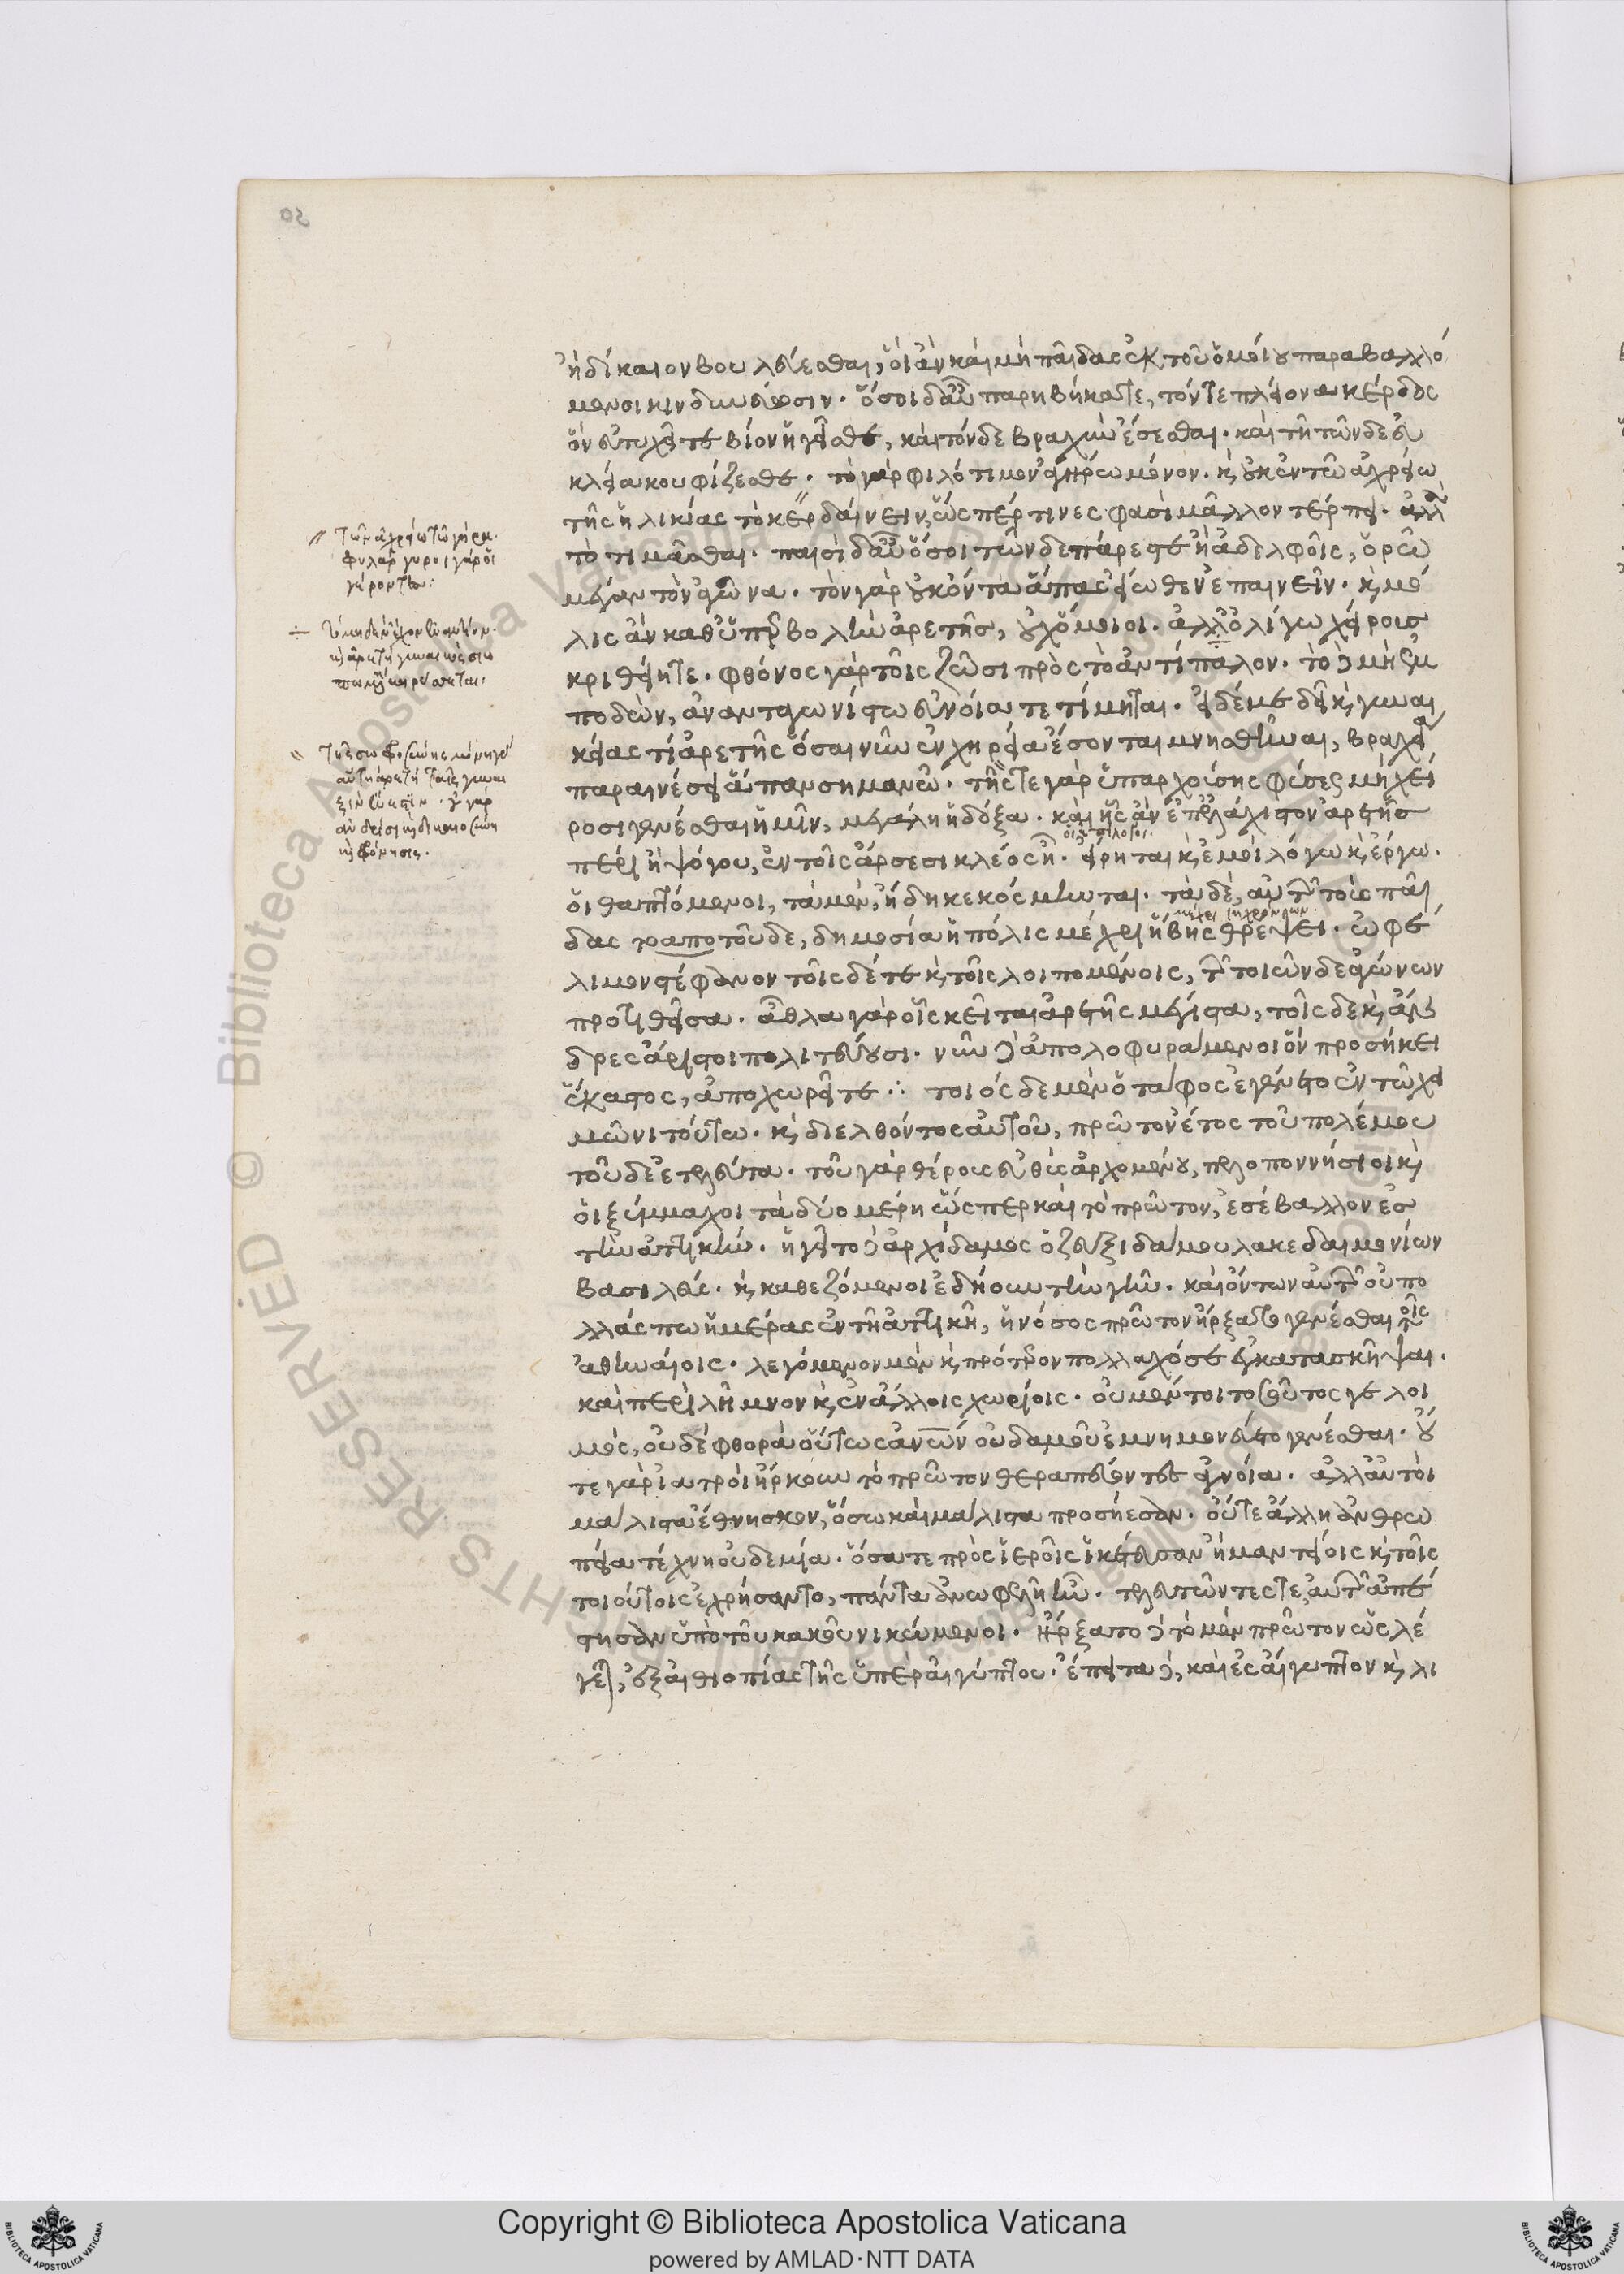 ἢ δίκαιον βουλεύεσθαι, οἳ ἂν καὶ μὴ παῖδας ἐκ τοῦ ὁμοίου παραβαλλό
μενοι κινδυνεύωσιν. ὅσοι δ' αὖ παρηβήκατε, τόν τε πλείονα κέρδος
ὃν εὐτυχεῖτε βίον ἡγεῖσθε, καὶ τόνδε βραχὺν ἔσεσθαι. καὶ τῇ τῶνδε εὐ
κλείᾳ κουφίζεσθε. τὸ γὰρ φιλότιμον ἀγήρω μόνον. καὶ οὐκ ἐν τῷ ἀχρείῳ
τῆς ἡλικίας τὸ κερδαίνειν, ὥσπερ τινές φασι μᾶλλον τέρπει. ἀλλὰ
τὸ τιμᾶσθαι. παισὶ δ' αὖ ὅσοι τῶνδε πάρεστε ἢ ἀδελφοῖς, ὁρῶ
μέγαν τὸν ἀγῶνα. τὸν γὰρ οὐκ ὄντα ἅπας εἴωθεν ἐπαινεῖν. καὶ μό
λις ἂν καθ' ὑπερβολὴν ἀρετῆς, οὐχ ὅμοιοι. ἀλλ' ὀλίγῳ χείρους
κριθεῖτε. φθόνος γὰρ τοῖς ζῶσι πρὸς τὸ ἀντίπαλον. τὸ δὲ μὴ ἐμ
ποδὼν, ἀνανταγωνίστῳ εὐνοίᾳ τετίμηται. εἰ δέ με δεῖ καὶ γυναι
κείας τι ἀρετῆς ὅσαι νῦν ἐν χηρείᾳ ἔσονται μνησθῆναι, βραχείᾳ
παραινέσει ἅπαν σημανῶ. τῆς τε γὰρ ὑπαρχούσης φύσεως μὴ χεί
ροσι γενέσθαι ὑμῖν, μεγάλη ἡ δόξα. καὶ ἧς ἂν ἐπ' ἐλάχιστον ἀρετῆς
πέρι ἢ ψόγου, ἐν τοῖς ἄρσεσι κλέος ᾖ. εἴρηται καὶ ἐμοὶ λόγῳ καὶ ἔργῳ.
οἱ θαπτόμενοι, τὰ μὲν, ἤδη κεκόσμηνται. τὰ δὲ, αὐτῶν τοὺς παῖ
δας τὸ ἀπὸ τοῦδε, δημοσίᾳ ἡ πόλις μέχρι ἥβης θρέψει. ὠφέ
λιμον στέφανον τοῖς δέ τε καὶ τοῖς λοιπομένοις, τῶν τοιῶνδε ἀγώνων
προτιθεῖσα. ἆθλα γὰρ οἷς κεῖται ἀρετῆς μέγιστα, τοῖς δὲ καὶ ἄν
δρες ἄριστοι πολιτεύουσι. νῦν δὲ ἀπολοφυράμενοι ὃν προσήκει
ἕκαστος, ἀποχωρεῖτε ∴ τοιόσδε μὲν ὁ τάφος ἐγένετο ἐν τῷ χει
μῶνι τούτῳ. καὶ διελθόντος αὐτοῦ, πρῶτον ἔτος τοῦ πολέμου
τοῦδε ἐτελεύτα. τοῦ γὰρ θέρους εὐθὺς ἀρχομένου, πελοποννήσιοι καὶ
οἱ ξύμμαχοι τὰ δύο μέρη ὥσπερ καὶ τὸ πρῶτον, ἐσέβαλλον ἐς
τὴν ἀττικήν. ἡγεῖτο δὲ ἀρχίδαμος ὁ ζευξιδάμου λακεδαιμονίων
βασιλεύς. καὶ καθεζόμενοι ἐδῄουν τὴν γῆν. καὶ ὄντων αὐτῶν οὐ πο
λλάς πω ἡμέρας ἐν τῇ ἀττικῇ, ἡ νόσος πρῶτον ἤρξατο γενέσθαι τοῖς
ἀθηναίοις. λεγόμενον μὲν καὶ πρότερον πολλαχόσε ἐγκατασκῆψαι.
καὶ περὶ λῆμνον καὶ ἐν ἄλλοις χωρίοις. οὐ μέντοι τοσοῦτός γε λοι
μός, οὐδὲ φθορὰ οὕτως ἀνῶν οὐδαμοῦ ἐμνημονεύετο γενέσθαι. οὔ
τε γὰρ ἰατροὶ ἤρκουν τὸ πρῶτον θεραπεύοντες ἀγνοίᾳ. ἀλλ' αὐτοὶ
μάλιστα ἔθνησκον, ὅσῳ καὶ μάλιστα προσῄεσαν. οὔτε ἄλλη ἀνθρω
πεία τέχνη οὐδεμία. ὅσα τε πρὸς ἱεροῖς ἱκέτευσαν ἢ μαντείοις καὶ τοῖς
τοιούτοις ἐχρήσαντο, πάντα ἀνωφελῆ ἦν. τελευτῶντές τε αὐτῶν ἀπέ
στησαν ὑπὸ τοῦ κακοῦ νικώμενοι. ἤρξατο δὲ τὸ μὲν πρῶτον ὡς λέ
γεται, ἐξ αἰθιοπίας τῆς ὑπὲρ αἰγύπτου. ἔπειτα δὲ, καὶ ἐς αἴγυπτον καὶ λι
τῶ ἀχρείῳ τῷ γήρᾳ·
φιλάργυροι γὰρ οἱ
γέροντες:
Copyright © Biblioteca Apostolica Vaticana
powered by AMLAD·NTT DATA